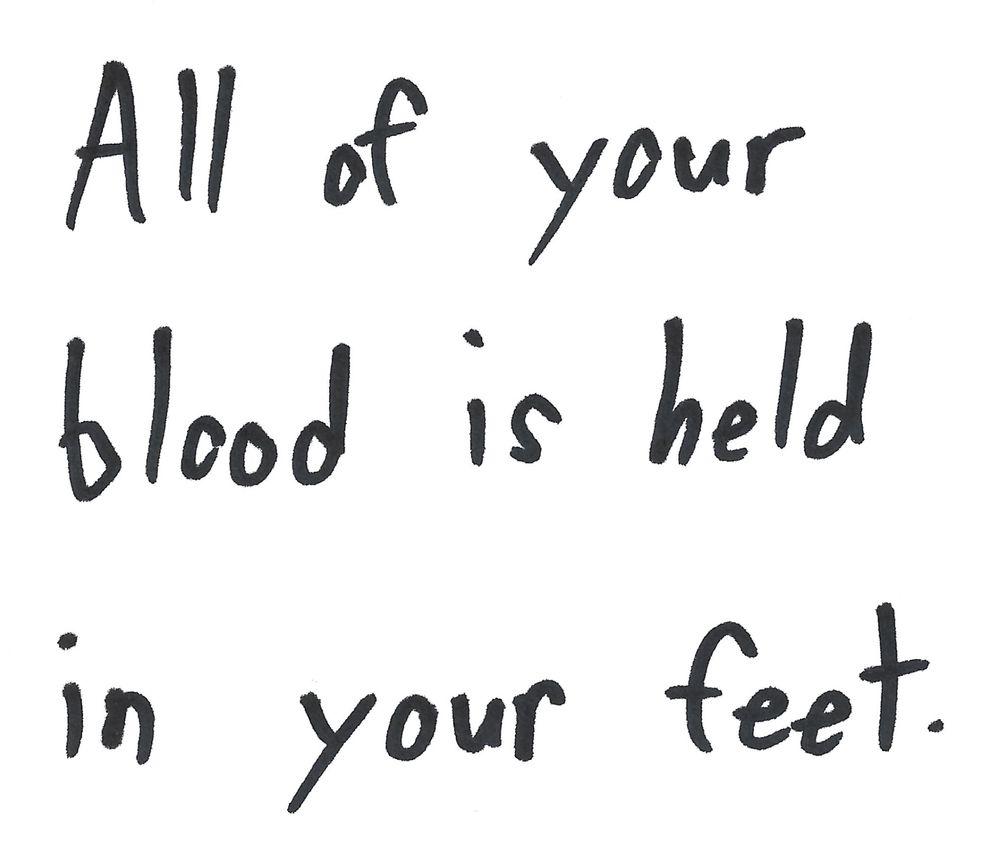 All of your
blood is held
in your feet.